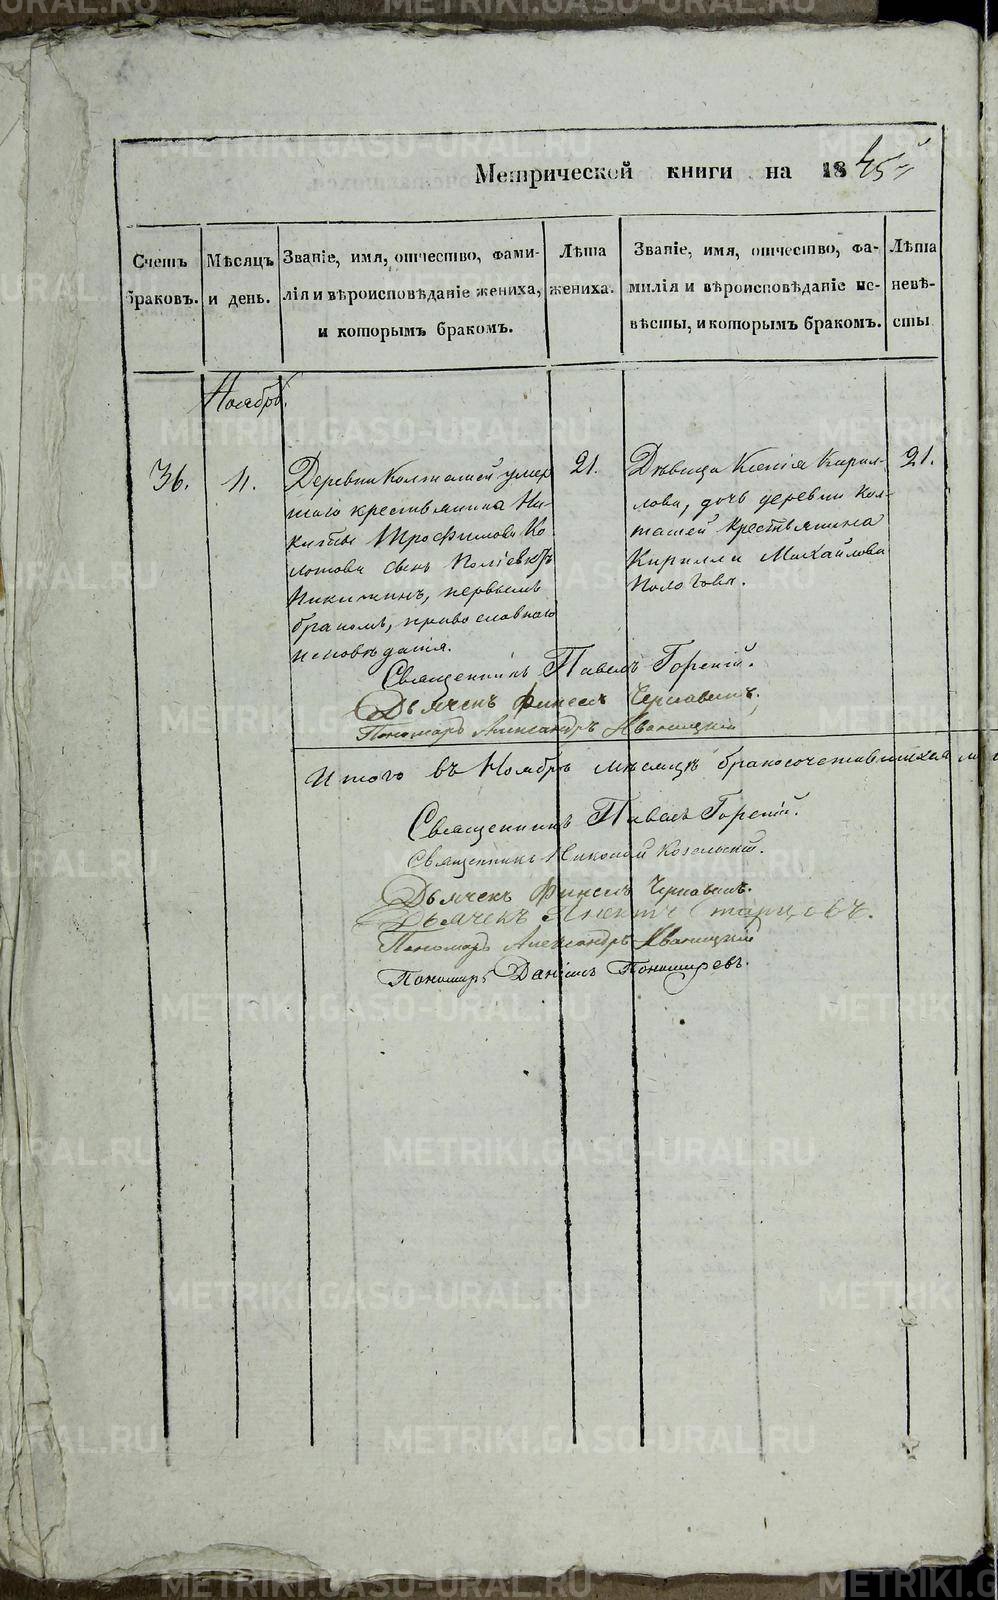 Метрической книги на 1845й
Счетъ браковъ.
Мѣсяцъ и день.
Званіе, имя, отчество, фами-
лія и вѣроисповѣданіе жениха,
и которымъ бракомъ.
Лѣта
жениха.
Званіе, имя, отчество, фа-
милія и вѣроисповѣданіе не-
вѣсты, и которымъ бракомъ.
Лѣта
невѣ-
сты
Ноябрь.
36.
11.
Деревни Колташей умер
шаго крестьянина Ни-
киты Трофимова Ко
лотова сынъ
Никитинъ, первымъ
бракомъ, православнаго
исповѣданія.
21.
Дѣвица Ксенія Кирил-
лова, дочь деревни Кол-
ташей крестьянина
Кириллы Михайлова
Колотова.
21.
Священникъ Павелъ Горскій.
Дьячекъ Финеесъ Чернавинъ.
Пономарь Александръ Иваницкій
Итого въ Ноябрѣ мѣсяцѣ бракосочетавшихся
Священникъ Павелъ Горскій.
Священникъ Николай Козельскій.
Дьячекъ Финеесъ Чернавинъ.
Дьячекъ Старцовъ.
Пономарь Александръ Иваницкій
Пономарь Даніилъ Пономаревъ.
METRIKI.GASO-URAL.RU